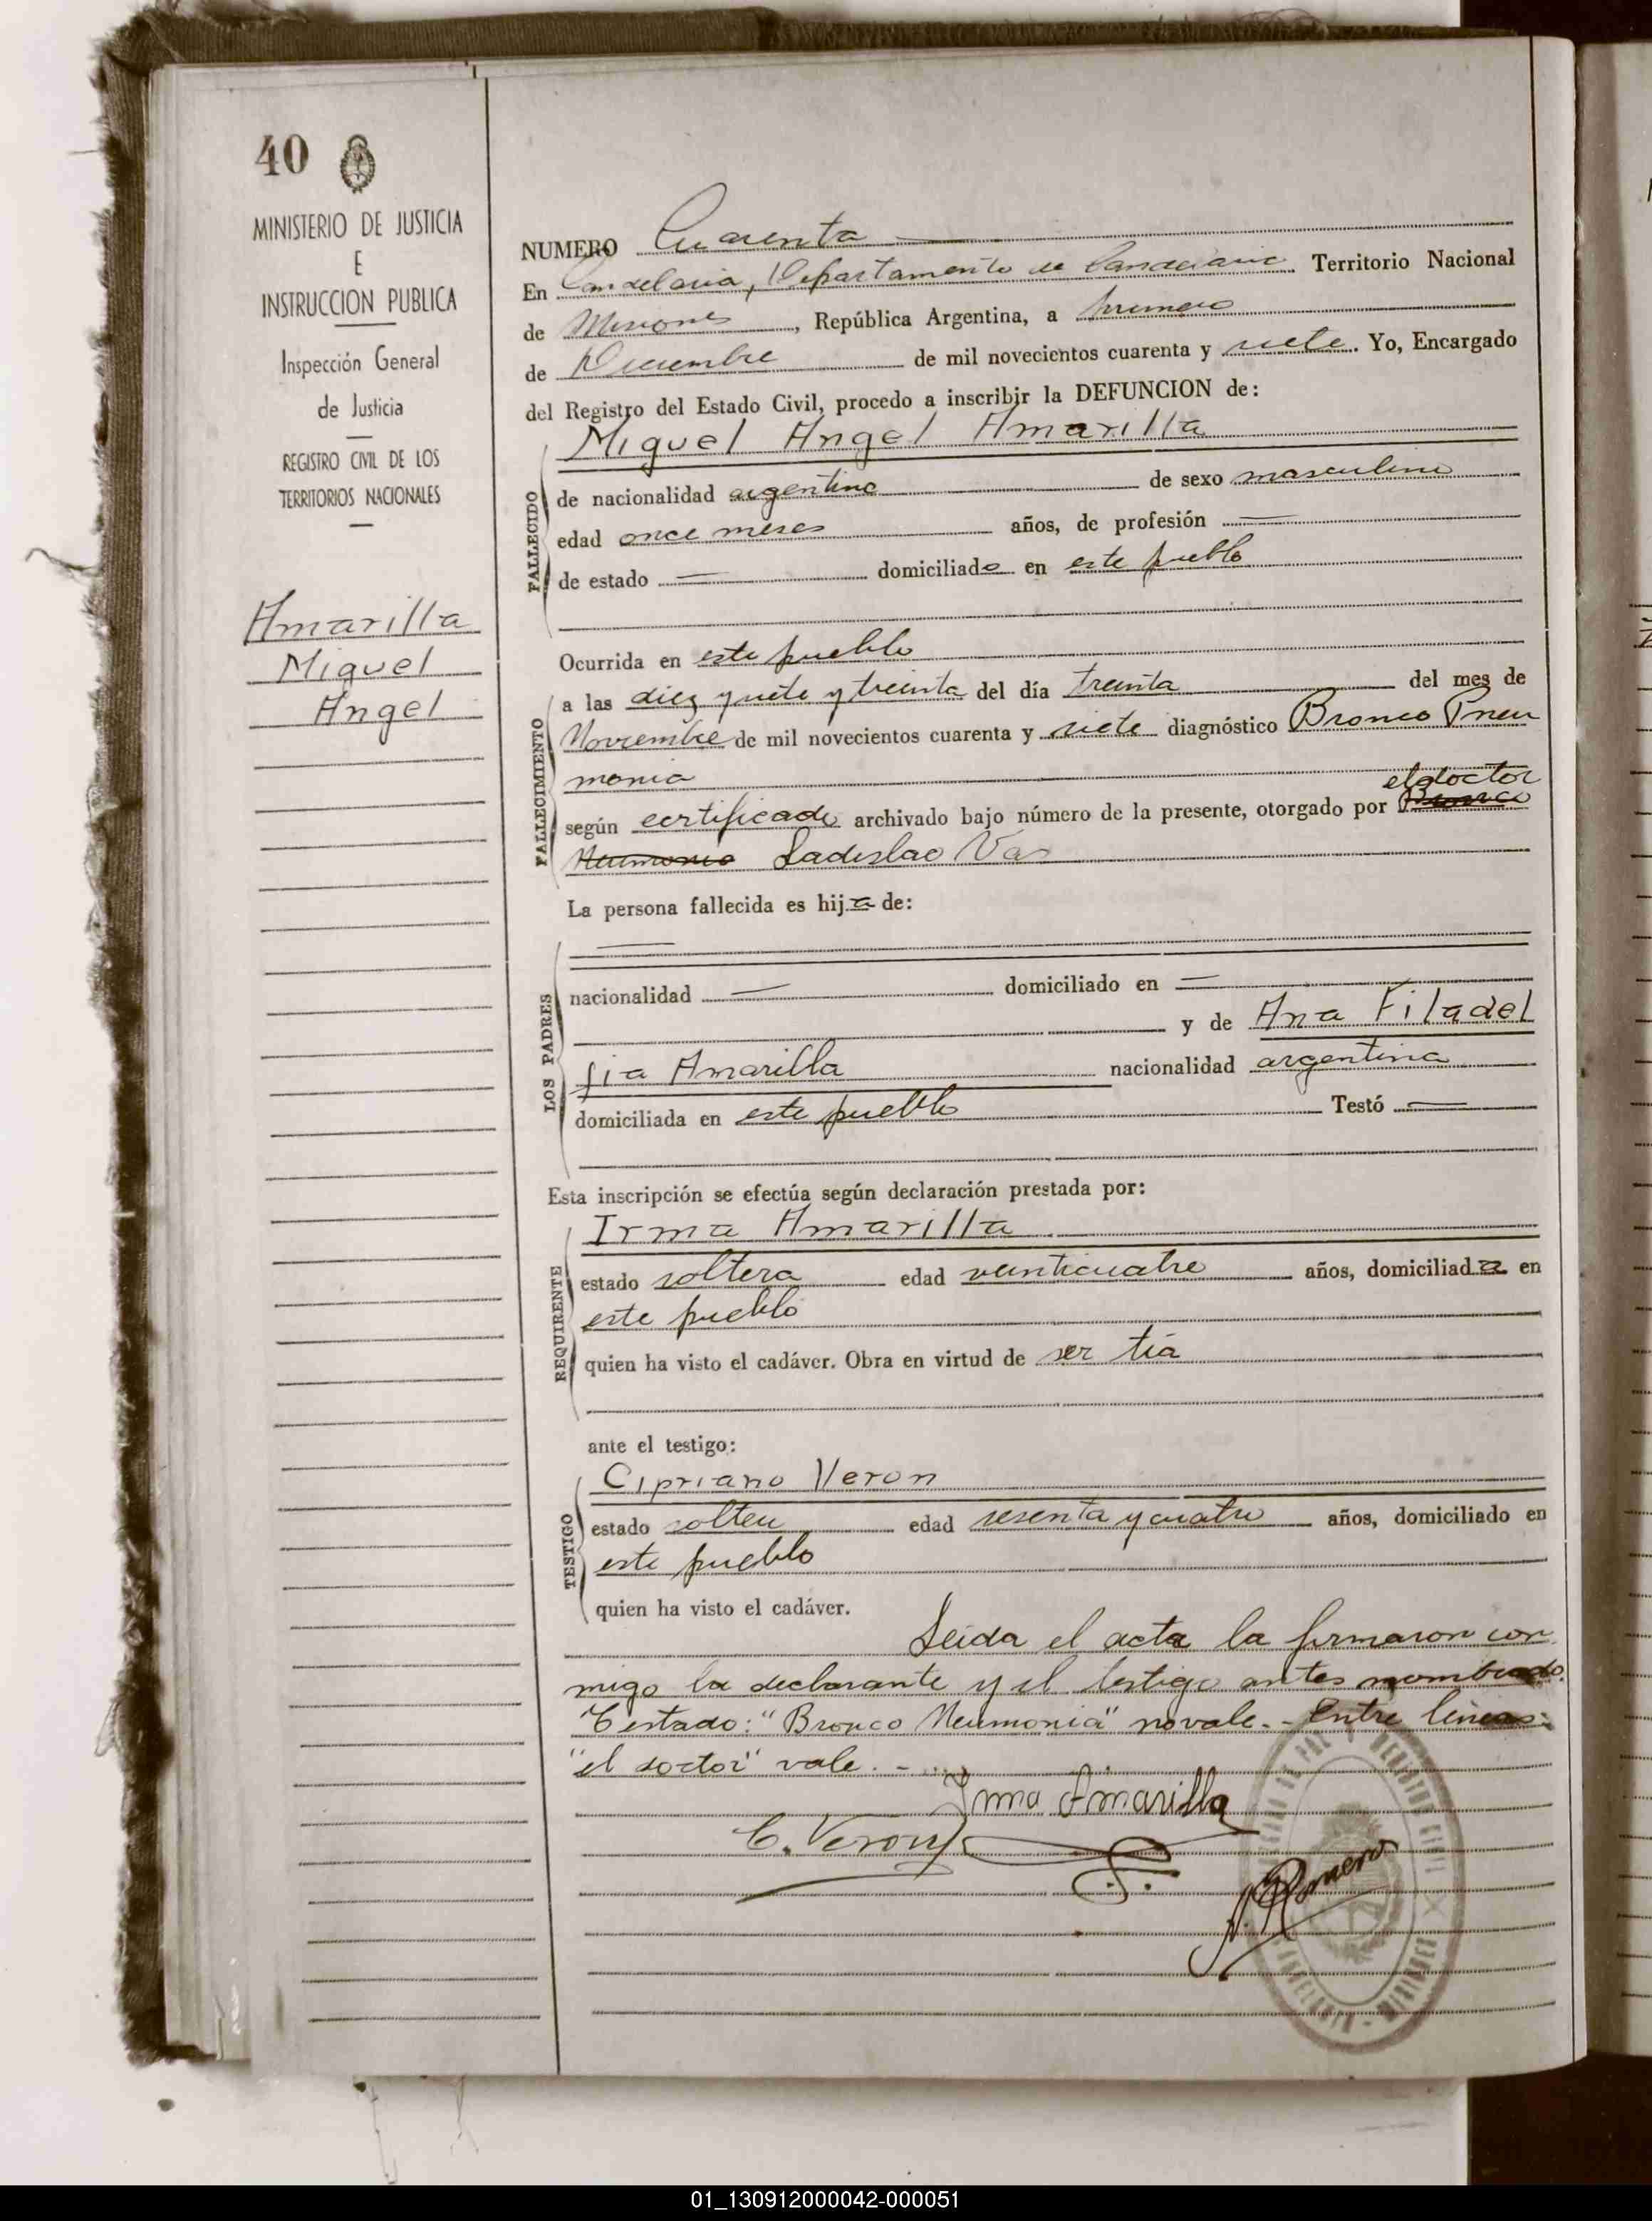 40
MINISTERIO DE JUSTICIA
E
INSTRUCCION PUBLICA
Inspección General
de Justicia
REGISTRO CIVIL DE LOS
TERRITORIOS NACIONALES
Amarilla
Miguel
Angel
NUMERO Cuarenta
En Candelaria, Departamento de Candelaria Territorio Nacional
de Misiones, República Argentina, a primero
de Diciembre de mil novecientos cuarenta y siete. Yo, Encargado
del Registro del Estado Civil, procedo a inscribir la DEFUNCION de:
Miguel Angel Amarilla
FALLECIDO
de nacionalidad argentino de sexo masculino
edad once meses años, de profesión —
de estado — domiciliado en este pueblo
Ocurrida en este pueblo
FALLECIMIENTO
a las diez y siete y treinta del día treinta del mes de
Noviembre de mil novecientos cuarenta y siete diagnóstico Bronco Pneu
monia
el doctor
según certificado archivado bajo número de la presente, otorgado por Bronco
Neumonia Ladislao
La persona fallecida es hijo de:
LOS PADRES
nacionalidad — domiciliado en —
y de Ana Filadel
fia Amarilla nacionalidad argentina
domiciliada en este pueblo Testó —
Esta inscripción se efectúa según declaración prestada por:
REQUIRENTE
Irma Amarilla
estado soltera edad veinticuatro años, domiciliada en
este pueblo
quien ha visto el cadáver. Obra en virtud de ser tía
ante el testigo:
TESTIGO
Cipriano Veron
estado soltero edad sesenta y cuatro años, domiciliado en
este pueblo
quien ha visto el cadáver.
Leida el acta la firmaron con
migo la declarante y el testigo antes nombrado.
Testado: "Bronco Neumonia" no vale. - Entre lineas:
"el doctor" vale. -
Irma Amarilla
C. Veron
Romero
01_130912000042-000051